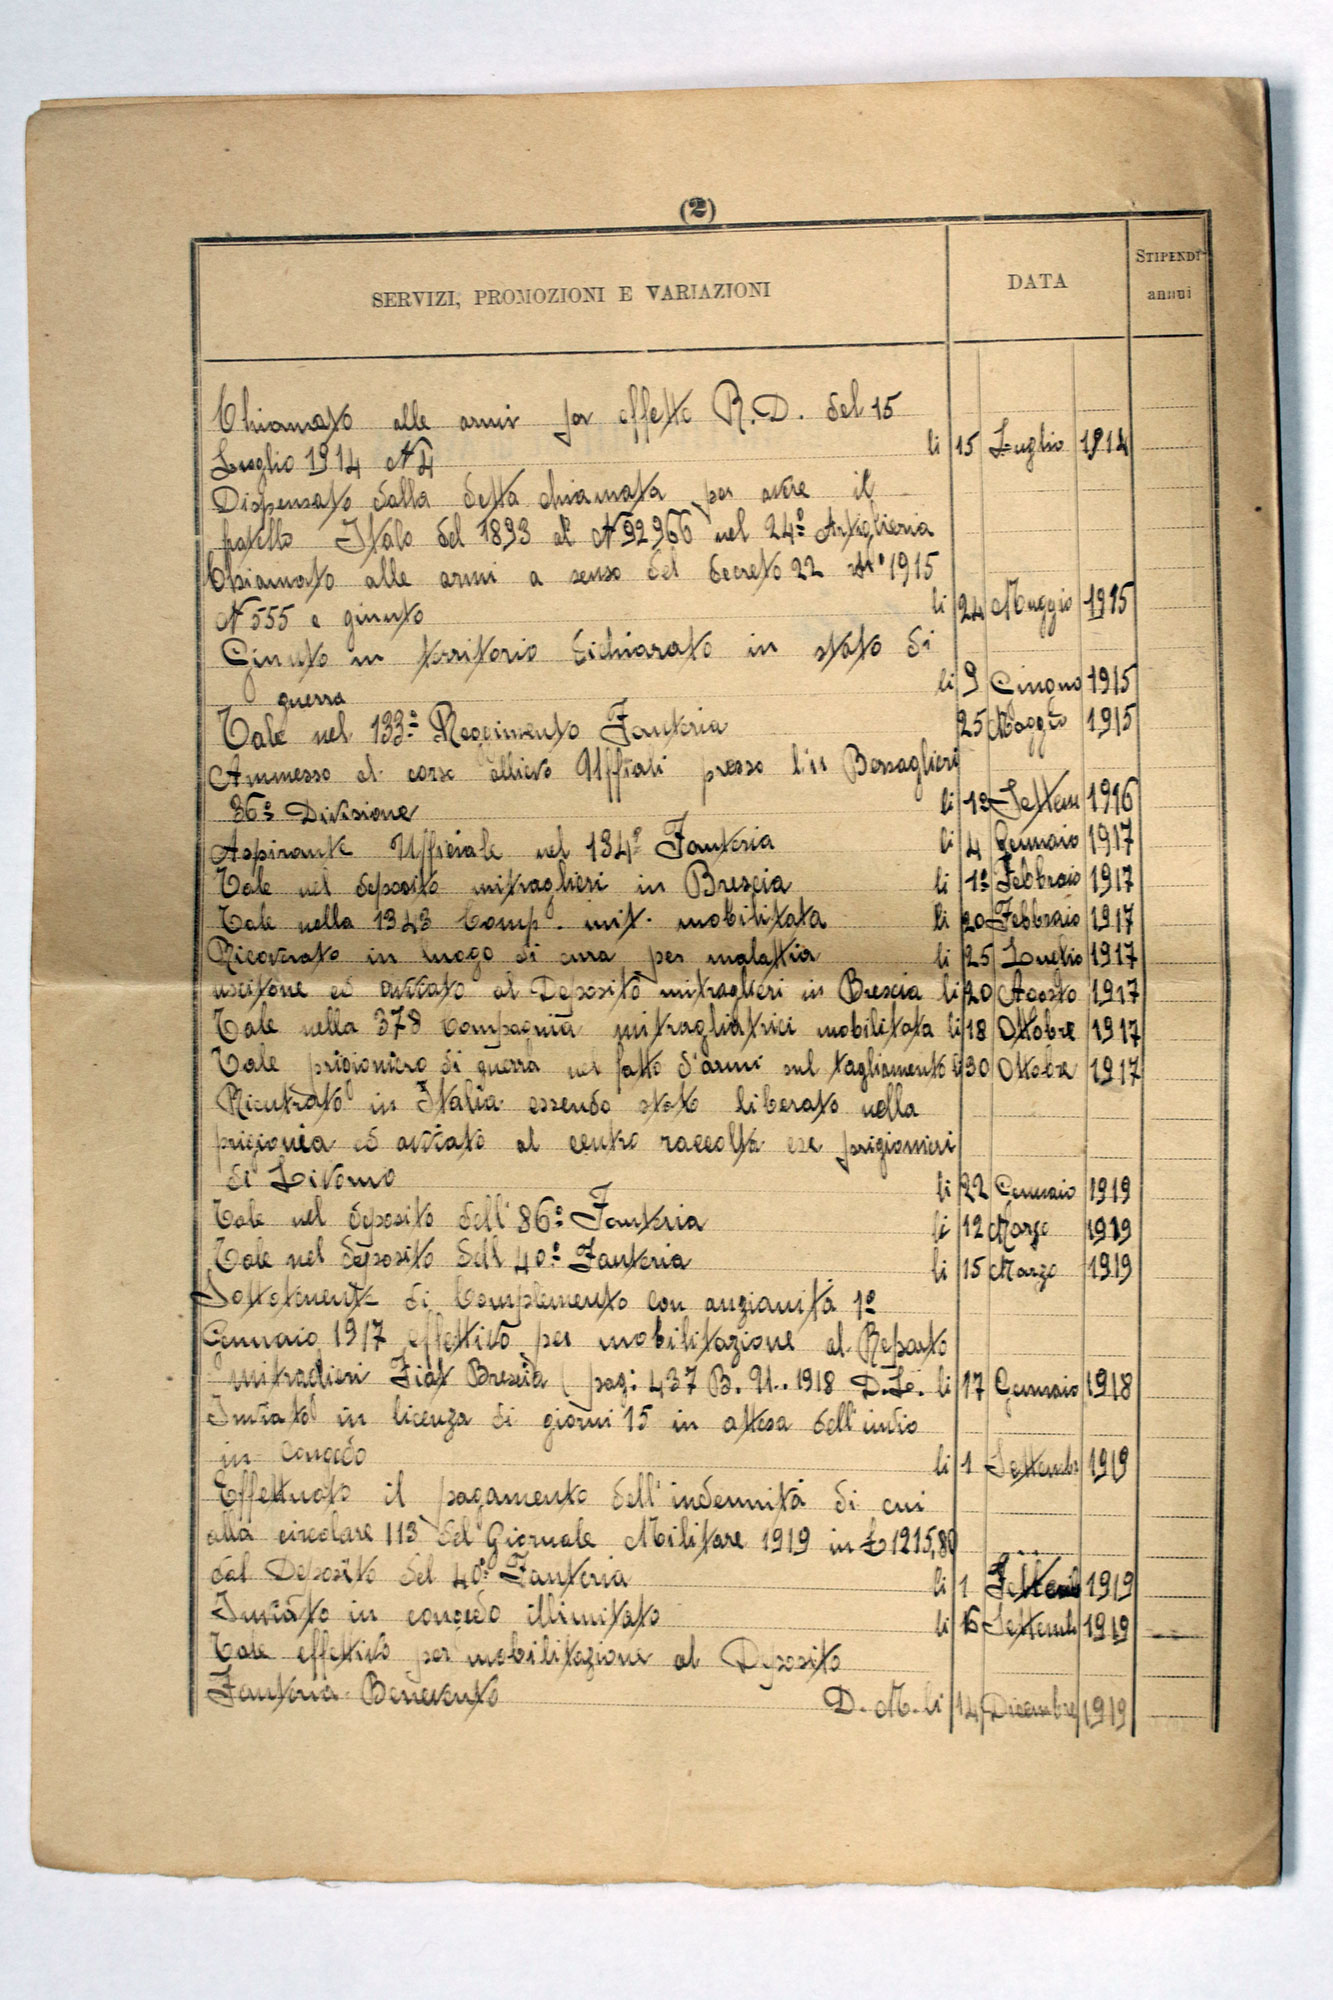 (2)
SERVIZI, PROMOZIONI E VARIAZIONI DATA STIPENDI annui
Chiamato alle armi per effetto R.D. del 15
Luglio 1914 N 4 li 15 Luglio 1914
Dispensato dalla detta chiamata per avere il
fratello Italo del 1893 al N 92966 nel 24º Artiglieria
Chiamato alle armi a senso del decreto 22 1915
N 555 e giunto li 24 Maggio 1915
Giunto in territorio dichiarato in stato di
guerra li 9 Giugno 1915
Tale nel 133º Reggimento Fanteria 25 Maggio 1915
Ammesso al corso allievo Uffiali presso l'11 Bersaglieri
36º Divisione li 13 Settem 1916
Aspirante Ufficiale nel 134º Fanteria li 4 Gennaio 1917
Tale nel deposito mitraglieri in Brescia li 1º Febbraio 1917
Tale nella 1343 Comp. mit. mobilitata li 20 Febbraio 1917
Ricovrato in luogo di cura per malattia li 25 Luglio 1917
uscitone ed avviato al Deposito mitraglieri in Brescia li 20 Agosto 1917
Tale nella 378 Compagnia mitragliatrici mobilitata li 18 Ottobre 1917
Tale prigioniero di guerra nel fatto d'armi sul Tagliamento li 30 Ottobre 1917
Rientrato in Italia essendo stato liberato nella
prigionia ed avviato al centro raccolta ex prigionieri
di Livorno li 22 Gennaio 1919
Tale nel deposito dell'86º Fanteria li 12 Marzo 1919
Tale nel deposito dell 40º Fanteria li 15 Marzo 1919
Sottotenente di Complemento con anzianità 1º
Gennaio 1917 effettivo per mobilitazione al Reparto
mitraglieri Fiat Brescia ( pag: 437 B. U. 1918 D.L. li 17 Gennaio 1918
Inviato in licenza di giorni 15 in attesa dell'invio
in Congedo li 1 Settembr 1919
Effettuato il pagamento dell'indennità di cui
alla circolare 113 del Giornale Militare 1919 in £ 1215,80
dal Deposito del 40º Fanteria li 1 Settemb 1919
Inviato in congedo illimitato li 16 Settemb 1919
Tale effettivo per mobilitazione al Deposito
Fanteria Benevento D. M. li 14 Dicembre 1919